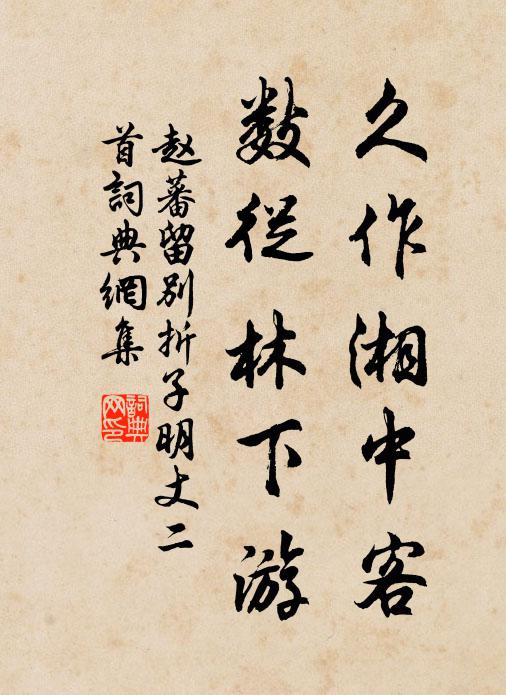 久作湘中客
数從林下游
赵蕃留别折子明丈二
首詞典網集
詞典网印